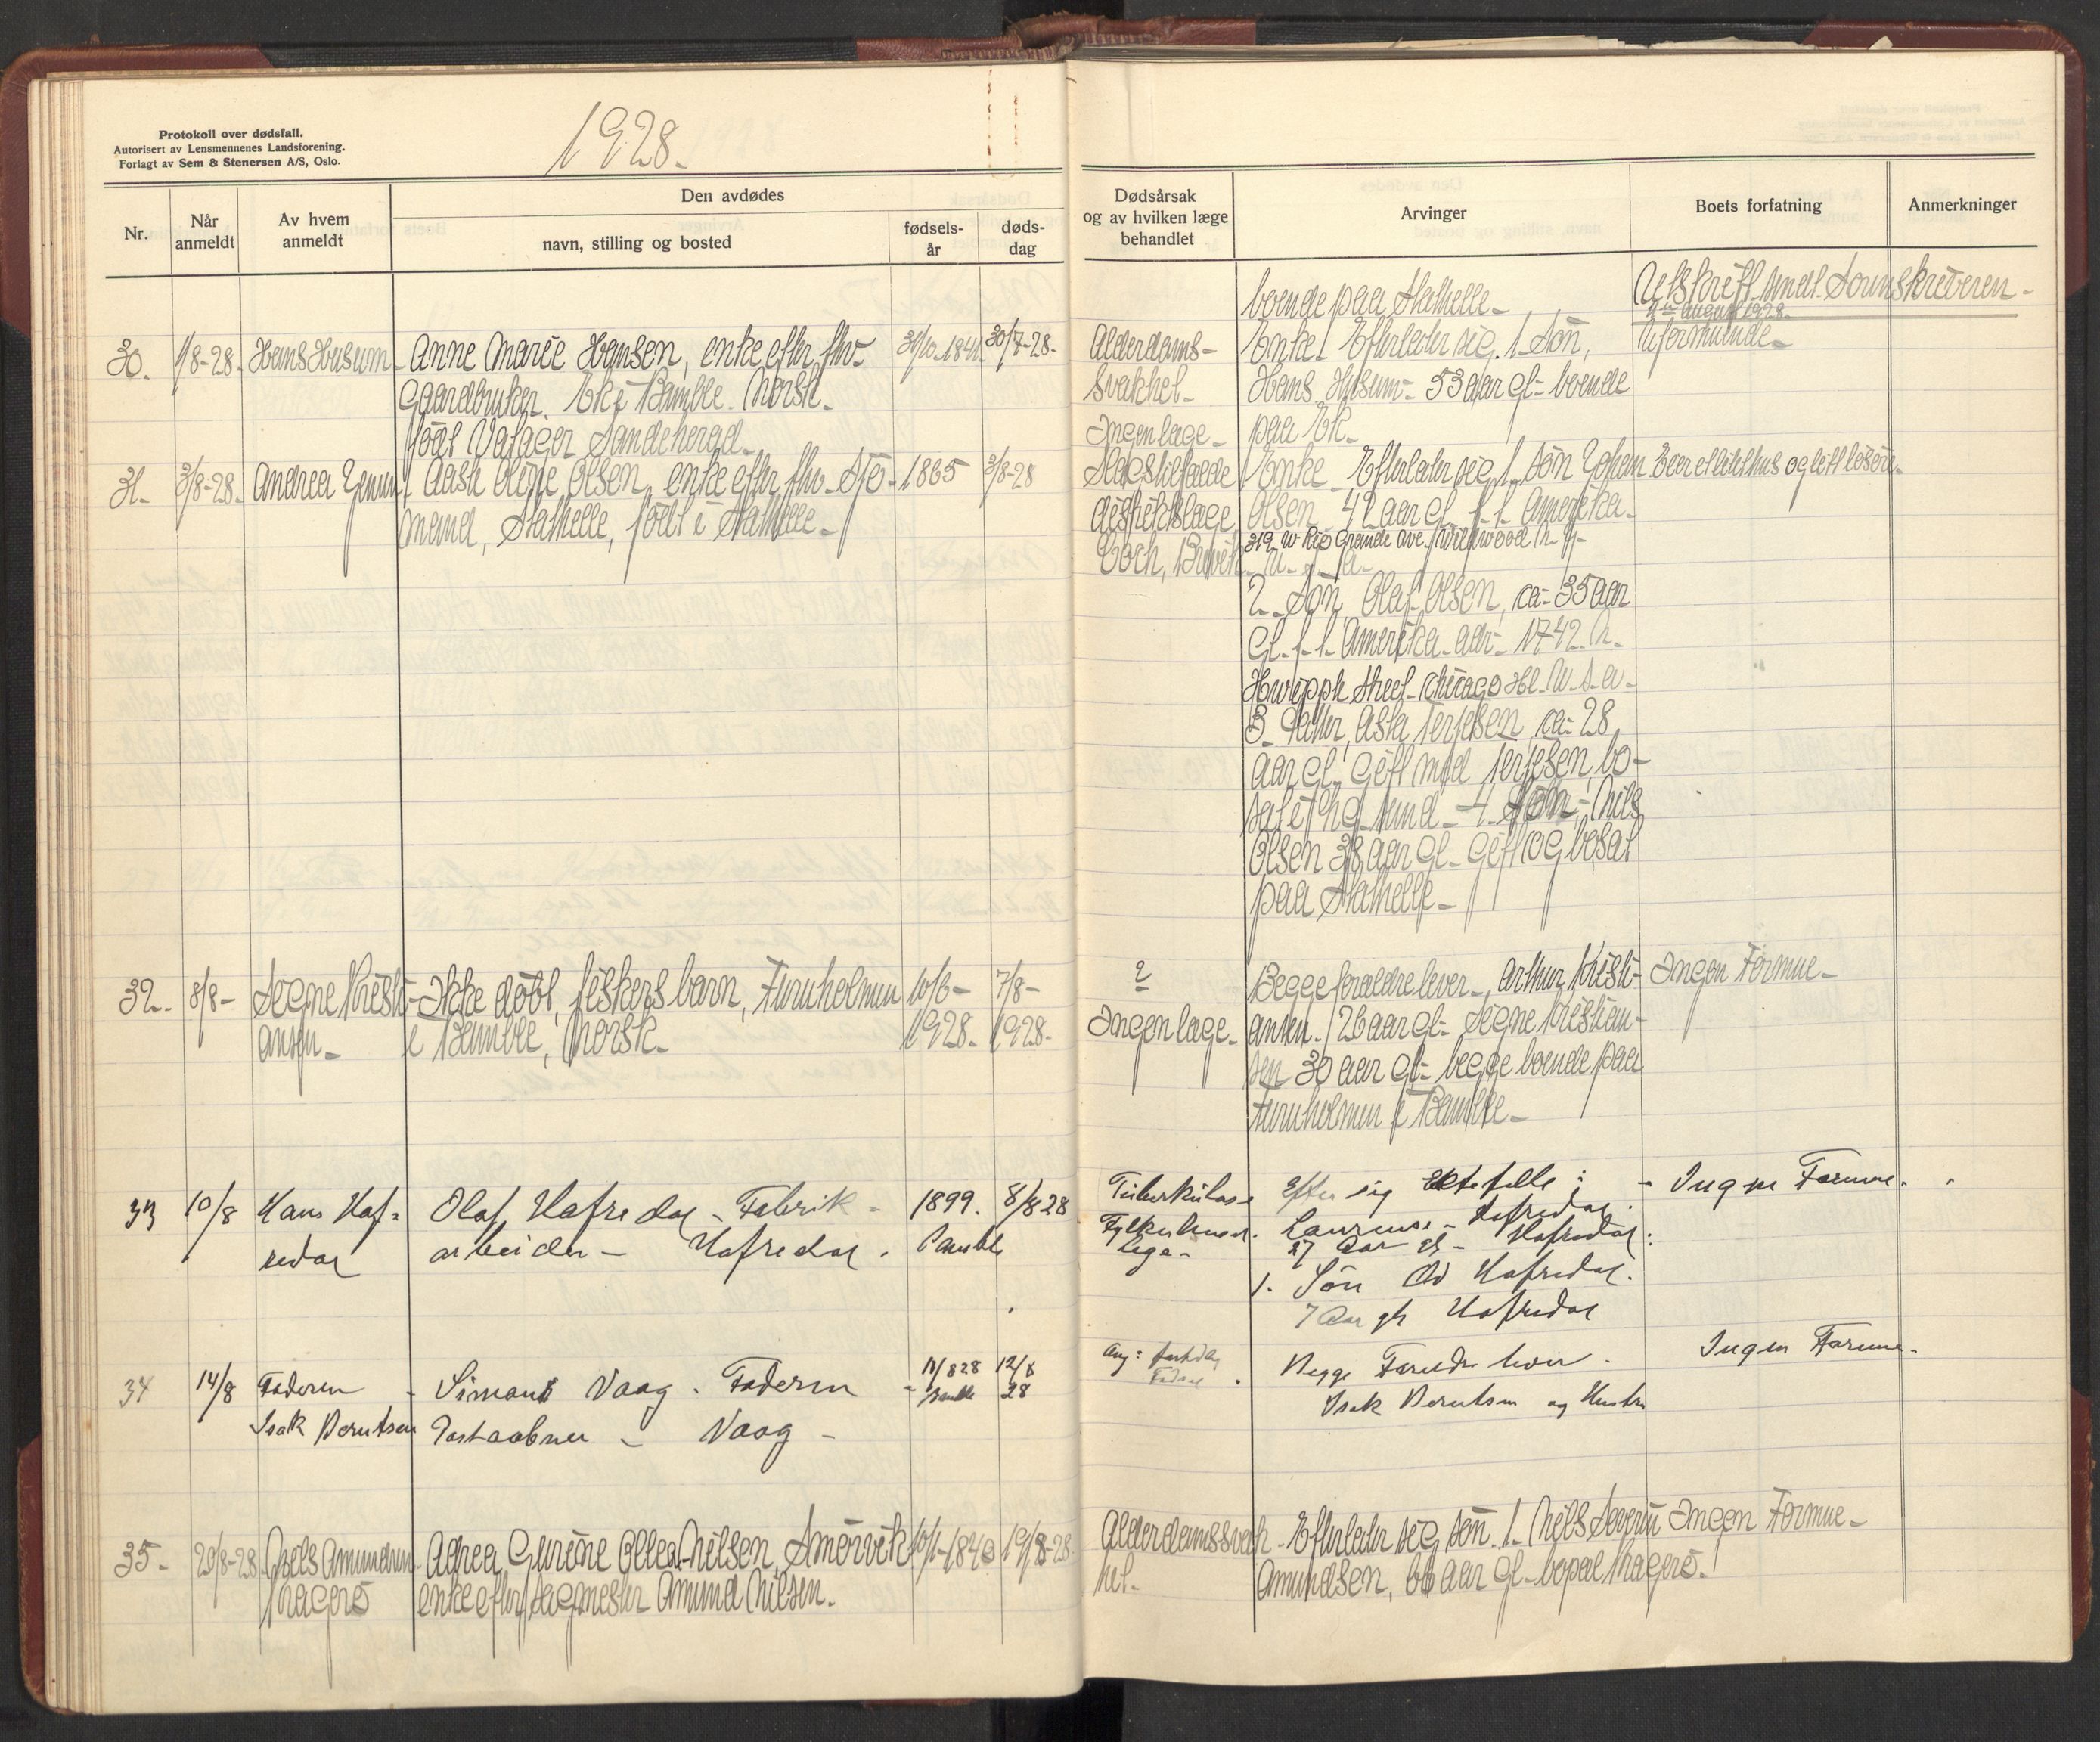 Protokoll over dødsfall.
Autorisert av Lensmennenes Landsforening.
Forlagt av Sem & Stenersen A/S, Oslo.
1928.
Nr.
Når anmeldt
Av hvem anmeldt
Den avdødes
navn, stilling og bosted
fødsels-år
døds-dag
Dødsårsak og av hvilken læge behandlet
Arvinger
Boets forfatning
Anmerkninger
boende paa Stathelle
Utskrift sendt Sorenskriveren
august 1928.
30. 1/8-28. Hans Husum Anne Marie Hansen, enke efter fhv.
Gaardbruker. Ek i Bamble. Norsk.
født Sandeherad
30/7-28.
Alderdoms-
svakhet
Ingen læge
Enke. Efterlater sig. 1. Søn,
Hans Husum 53 aar gl. boende
paa Ek.
Uformuende
31. 3/8-28. Andrea
Olsen, enke efter fhv. Sjø-
mand, Stathelle, født i Stathelle
1865
3/8-28
Slagtilfælde
distriktslæge
Coch, Brevik
Enke. Efterlater sig 1. søn Johan
Olsen 42 aar gl. f. t. Amerika.
319 W Rio Grande Ave. Wildwood N. J.
U. S. A.
2. Søn Olaf Olsen, ca. 35 aar
gl. f. t. Amerika adr. 1742 N.
Street Chicago Ill. U. S. A.
3. Datter, Asta Terjesen, ca. 28
aar gl. Gift med Terjesen, bo-
4. Søn, Nils
Olsen 38 aar gl. Gift og bosat
paa Stathelle
Eier et litet hus og litt løsøre.
32. 8/8- Signe Kristi-
ansen
Ikke døbt, fiskers barn, Furuholmen
i Bamble, Norsk.
10/6-
1928.
7/8-
1928.
?
Ingen læge.
Begge foreldre lever. Arthur Kristi-
ansen. 26 aar gl. Signe Kristian-
sen 30 aar gl. begge boende paa
Furuholmen i Bamble
Ingen Formue
33 10/8 Hans Haf-
redal
Olaf Hafredal - Fabrik-
arbeider - Hafredal.
1899.
Bamble
8/8 28
Tuberkulose
lege
Efter sig Ektefelle:
Laurense - Hafredal.
27 Aar gl - Hafredal.
1. Søn Hafredal.
7 Aar gl Hafredal
- Ingen Formue.
34 14/8 Faderen
Isak Berntsen
Vaag. Faderen
Postaabner - Vaag -
Bamble
12/8
28
Begge Foreldre lever.
Isak Berntsen og Hustru
Ingen Formue.
35. 20/8-28. Niels Amundsen
Kragerø
Nilsen, Smørvik
enke efter Sagmester Amund Nilsen.
19/8-28
Alderdomssvak-
het.
Efterlater sig søn. 1. Niels Severin
Amundsen, aar gl. bopæl Kragerø.
Ingen Formue